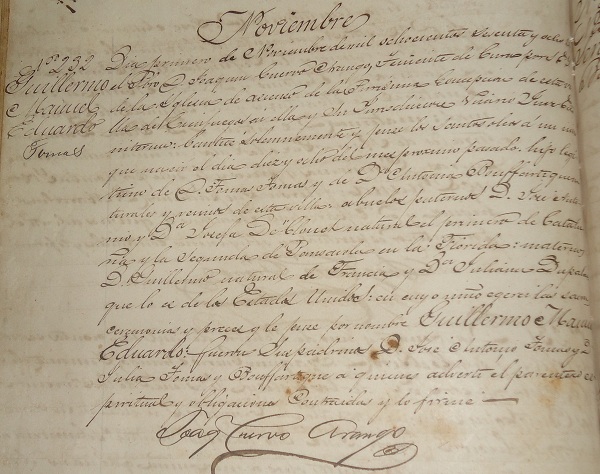 Noviembre
Nº 232
Guillermo
Manuel
Eduardo
Tomas
Dia primero de Noviembre de mil ochocientos sesenta y ocho
el Pbro D. Joaquin Cuervo Arango Teniente de Cura por
de la Iglesia de de la Purísima Concepcion de esta vi
lla de Cienfuegos en ella y su Vicario
interino: Bautice solemnemente y puse los Santos oleos á un
que nacio el dia diez y ocho del mes proximo pasado, hijo legi
timo de D. Tomas Tomas y de Dª Bouffartigue na
turales y vecinos de esta villa: abuelos paternos D. José
mo, y Dª Josefa De Clouet natural el primero de Catalu
ña y la segunda de Pensacola en la Florida: maternos
D. Guillermo natural de Francia y Dª Juliana
que lo es de los Estados Unidos: en cuyo niño egercí las sacras
ceremonias y preces y le puse por nombre Guillermo Manuel
Eduardo: fueron sus padrinos D. José Antonio Tomas y Dª
Julia Tomas y Bouffartigue á quienes advertí el parentesco es
piritual y obligaciones contraidas y lo firmé
Joaq Cuervo Arango